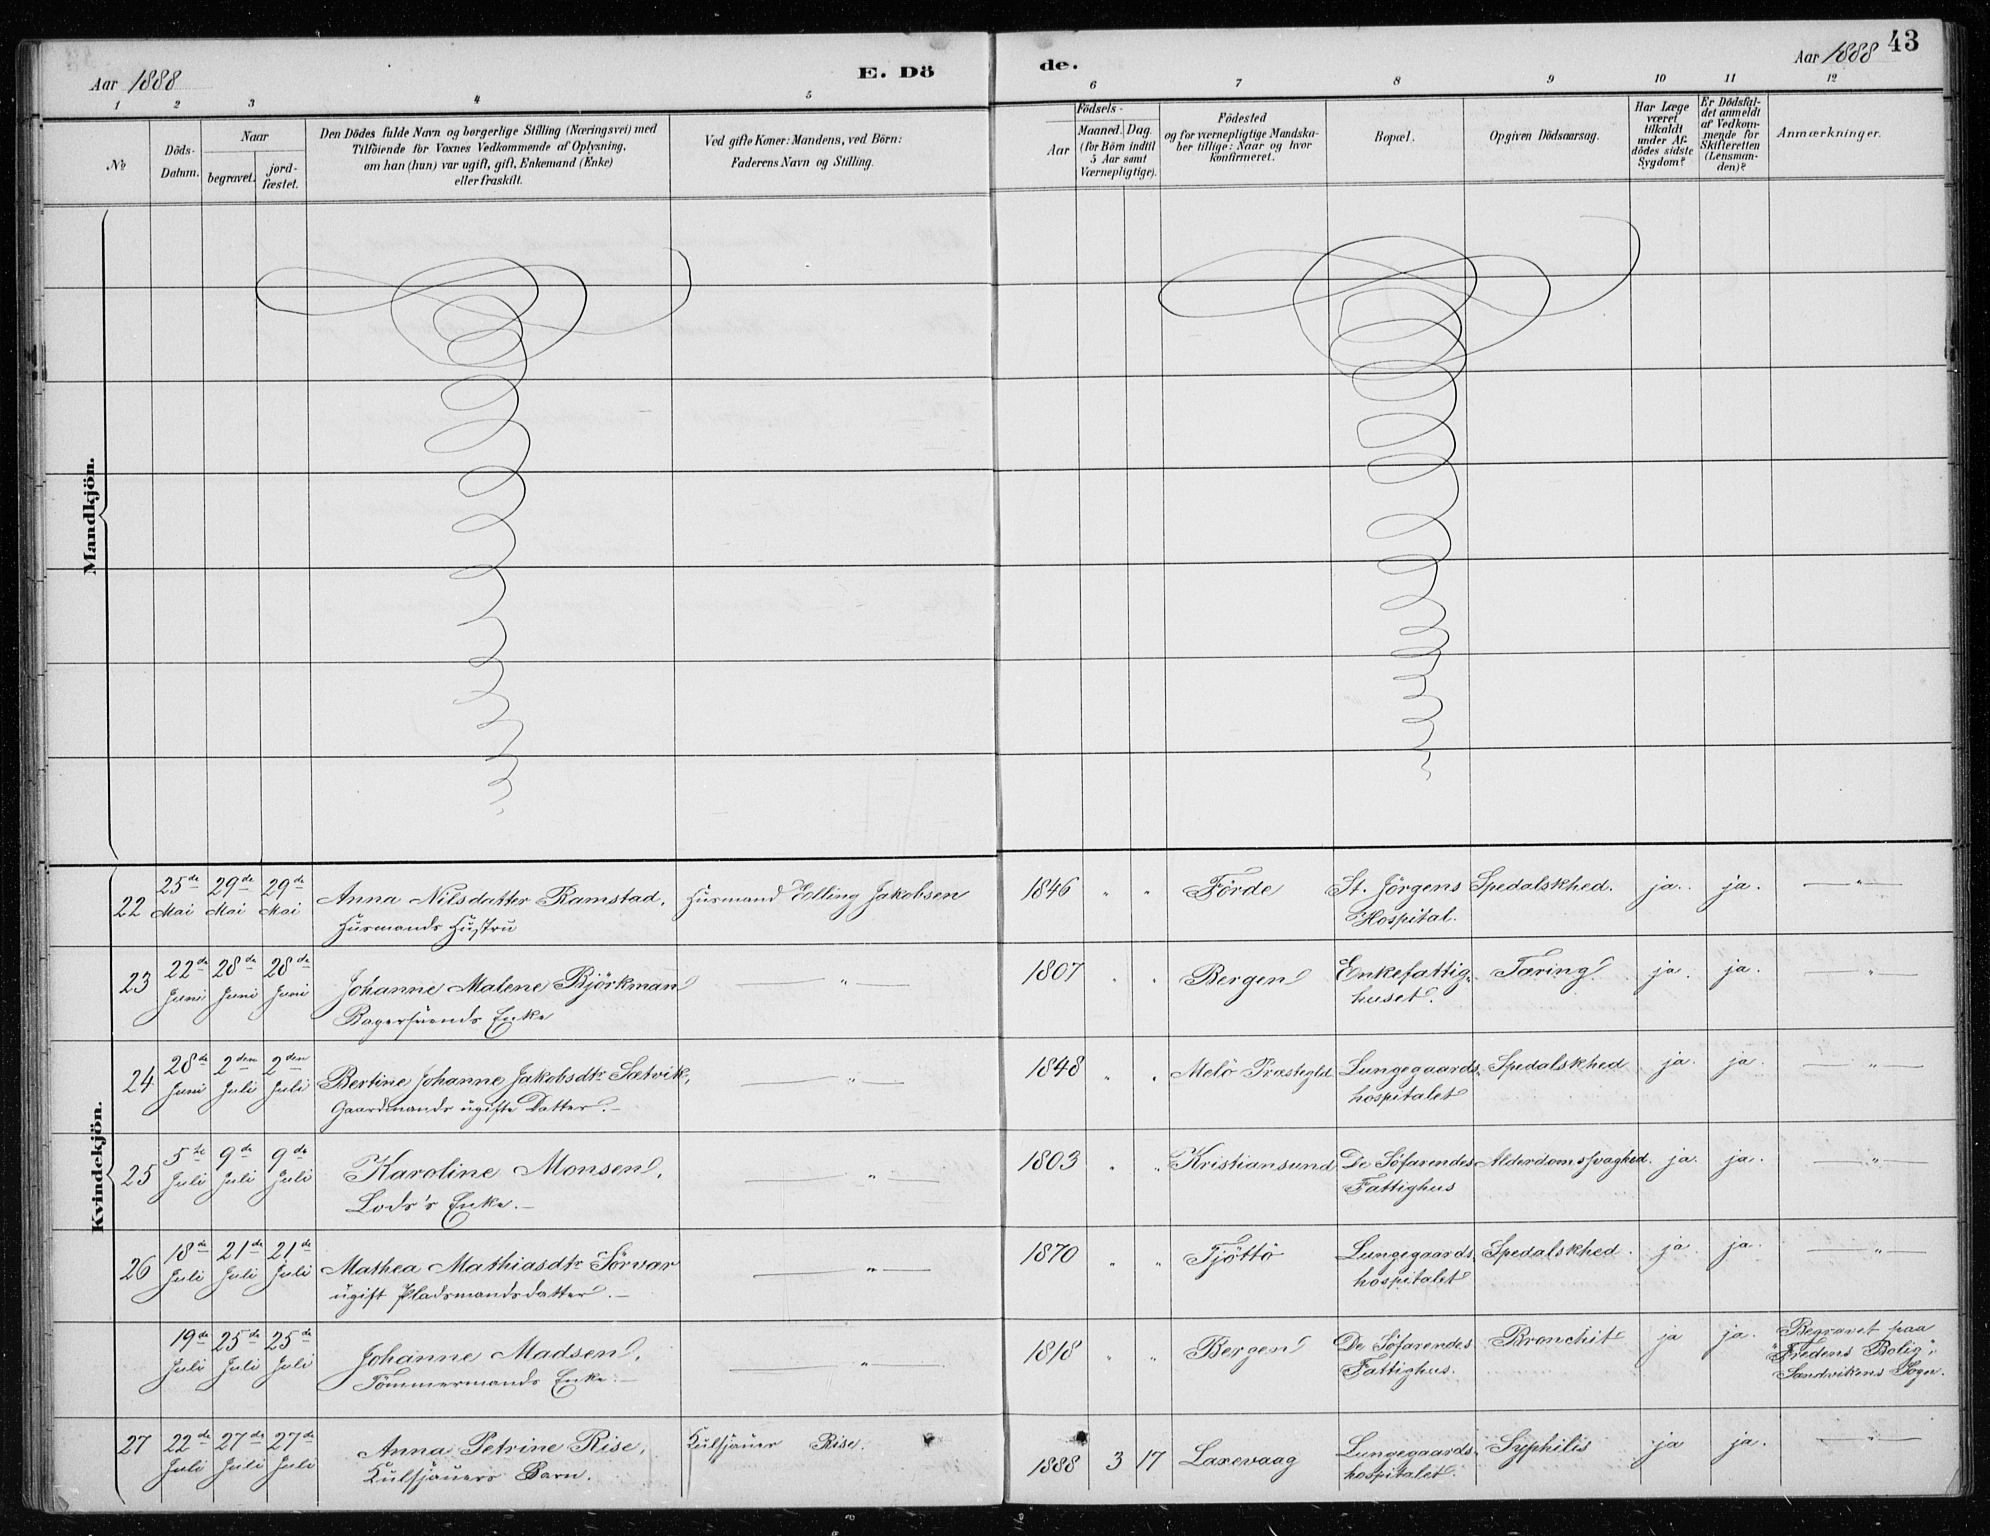 Aar 1888
E. Dö
de.
Aar 1888
43
1
2
3
4
5
6
7
8
9
10
11
12
No
Döds-
Datum.
Naar
begravet.
jord-
fæstet.
Den Dödes fulde Navn og borgerlige Stilling (Næringsvei) med
Tilföiende for Voxnes Vedkommende af Oplysning,
om han (hun) var ugift, gift, Enkemand (Enke)
eller fraskilt.
Ved gifte Koner: Mandens, ved Börn:
Faderens Navn og Stilling.
Födsels-
Aar
Maaned. Dag.
(for Börn indtil
5 Aar samt
Værnepligtige).
Födested
og for værnepligtige Mandska-
ber tillige: Naar og hvor
konfirmeret.
Bopæl.
Opgiven Dödsaarsag.
Har Læge
været
tilkaldt
under Af-
dödes sidste
Sygdom?
Er Dödsfal-
det anmeldt
af Vedkom-
mende for
Skifteretten
(Lensman-
den)?
Anmærkninger.
Mandkjön.
Kvindekjön.
22 25de Mai 29de Mai 29de Mai Anna Nilsdatter Ramstad, Husmand Elling Jakobsen 1846 " " Förde St. Jörgens Spedalskhed. ja. ja. — " —
Husmands Hustru Hospital.
23 22de Juni 28de Juni 28de Juni Johanne Malene Björkman — " — 1807 " " Bergen Enkefattig- Tæring ja. ja. — " —
Bagersvends Enke huset.
24 28de Juni 2den Juli 2den Juli Bertine Johanne Jakobsdtr Sætvik, — " — 1848 " " Melö Præstegld. Lungegaards- Spedalskhed ja. ja. — " —
Gaardmands ugifte Datter. — hospitalet
25 5te Juli 9de Juli 9de Juli Karoline Monsen, — " — 1803 " " Kristiansund De Söfarendes Alderdomssvaghed. ja. ja. — " —
Lods's Enke. — Fattighus
26 18de Juli 21de Juli 21de Juli Mathea Mathiasdtr Sörvar — " — 1870 " " Tjöttö Lungegaards- Spedalskhed. ja. ja. — " —
ugift Pladsmandsdatter. — hospitalet
19de Juli 25de Juli 25de Juli Johanne Madsen, — " — 1818 " " Bergen De Söfarendes Bronchit ja ja. Begravet paa
Tömmermands Enke. — Fattighus. "Fredens Bolig",
Sandvikens Sogn.
27 22de Juli 27de Juli 27de Juli Anna Petrine Rise, Kulsjauer Rise. 1888 3 17 Laxevaag Lungegaards- Syphilis ja ja. — " —
Kulsjauers Barn. hospitalet.